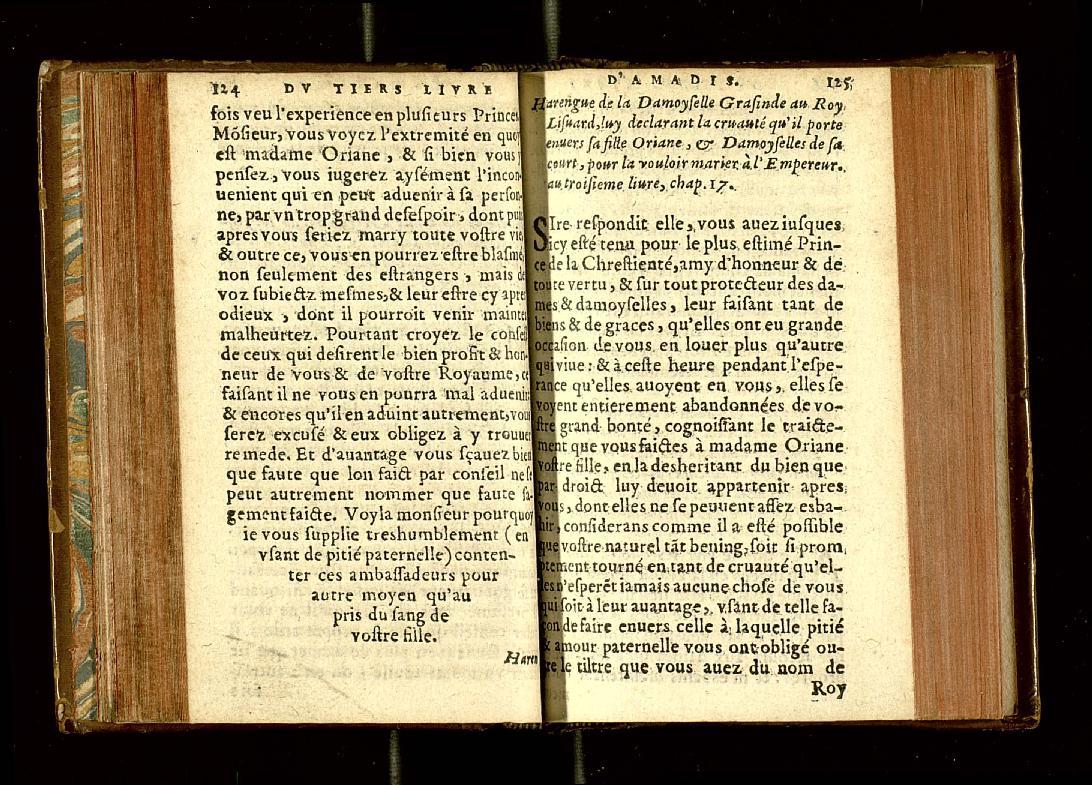 124 DV TIERS LIVRE
fois veu l'experience en pluſieurs Princes
Mõſieur, vous voyez l'extremité en quoy
eſt madame Oriane, & ſi bien vous y
penſez, vous iugerez ayſément l'incon-
uenient qui en peut aduenir à ſa perſon-
ne, par vn trop grand deſeſpoir, dont puis
apres vous ſeriez marry toute voſtre vie,
& outre ce, vous en pourrez eſtre blaſmé,
non ſeulement des eſtrangers, mais de
voz ſubiectz meſmes, & leur eſtre cy apres
odieux, dont il pourroit venir maintes
malheurtez. Pourtant croyez le conſeil
de ceux qui deſirent le bien profit & hon-
neur de vous & de voſtre Royaume, ce
faiſant il ne vous en pourra mal aduenir:
& encores qu'il en aduint autrement, vous
ſerez excuſé & eux obligez à y trouuer
remede. Et d'auantage vous ſçauez bien
que faute que lon faict par conſeil ne ſe
peut autrement nommer que faute ſa-
gement faicte. Voyla monſieur pourquoy
ie vous ſupplie treshumblement (en
vſant de pitié paternelle) conten-
ter ces ambaſſadeurs pour
autre moyen qu'au
pris du ſang de
voſtre fille.
Haren
D'AMADIS. 125
Harengue de la Damoyſelle Graſinde au Roy
Liſuard, luy declarant la cruauté qu'il porte
enuers ſa fille Oriane, & Damoyſelles de ſa
court, pour la vouloir marier à l'Empereur.
au troiſieme liure, chap. 17.
SIre reſpondit elle, vous auez iuſques
icy eſté tenu pour le plus eſtimé Prin-
ce de la Chreſtienté, amy d'honneur & de
toute vertu, & ſur tout protecteur des da-
mes & damoyſelles, leur faiſant tant de
biens & de graces, qu'elles ont eu grande
occaſion de vous en louer plus qu'autre
qui viue: & à ceſte heure pendant l'eſpe-
rance qu'elles auoyent en vous, elles ſe
voyent entierement abandonnées de vo-
ſtre grand bonté, cognoiſſant le traicte-
ment que vous faictes à madame Oriane
voſtre fille, en la desheritant du bien que
par droict luy deuoit appartenir apres
vous, dont elles ne ſe peuuent aſſez esba-
hir, conſiderans comme il a eſté poſſible
que voſtre naturel tãt bening, ſoit ſi prom
ptement tourné en tant de cruauté qu'el-
les n'eſperẽt iamais aucune choſe de vous
qui ſoit à leur auantage, vſant de telle fa-
çon de faire enuers celle à laquelle pitié
& amour paternelle vous ont obligé ou-
tre le tiltre que vous auez du nom de
Roy